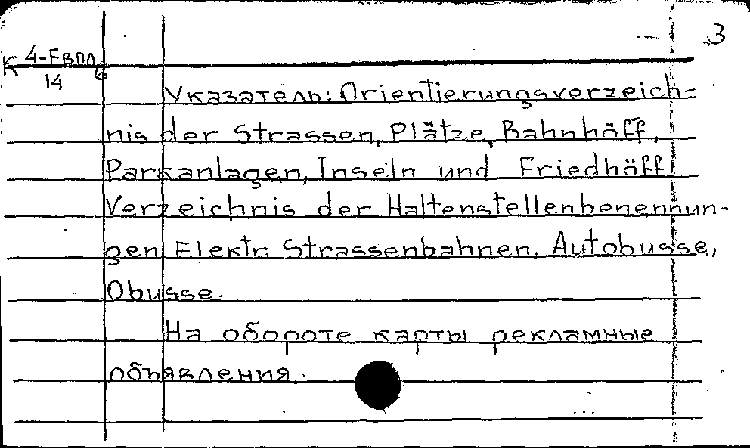 3
К 4-Евпл б
14
Указатель: Orientierungsverzeich-
nis der Strassen, Plätze, Bahnhöff,
Parkanlagen, Inseln und Friedhöff.
Verzeichnis der Haltenstellenbenennun-
gen Elektr. Strassenbahnen, Autobusse,
Obusse.
На обороте карты рекламные
объявления.